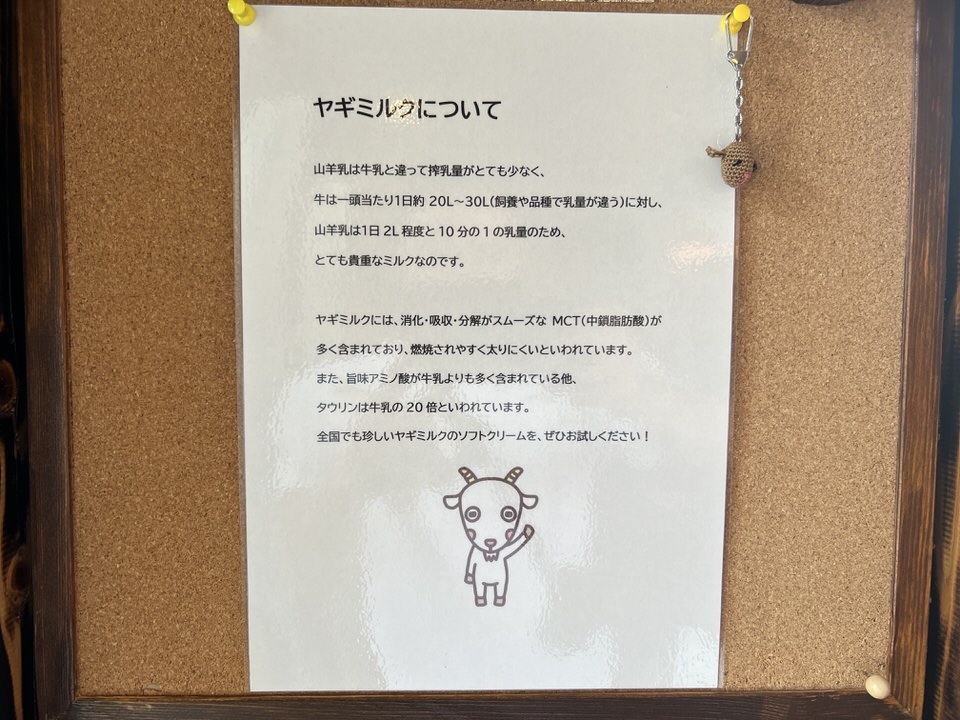 ヤギミルクについて
山羊乳は牛乳と違って搾乳量がとても少なく、
牛は一頭当たり1日約 20L～30L(飼養や品種で乳量が違う)に対し、
山羊乳は1日 2L 程度と 10 分の 1 の乳量のため、
とても貴重なミルクなのです。
ヤギミルクには、消化・吸収・分解がスムーズな MCT(中鎖脂肪酸)が
多く含まれており、燃焼されやすく太りにくいといわれています。
また、旨味アミノ酸が牛乳よりも多く含まれている他、
タウリンは牛乳の 20 倍といわれています。
全国でも珍しいヤギミルクのソフトクリームを、ぜひお試しください！